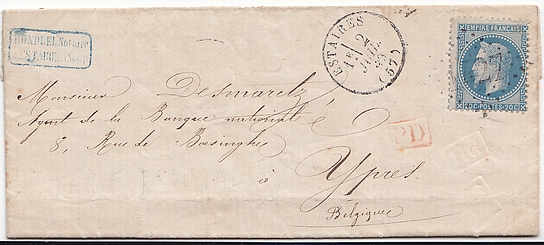 RONDUEL Notaire
à ESTAIRES (Nord)
ESTAIRES
1E
2
JUIL.
(57)
EMPIRE FRANÇAIS
20c POSTES 20c
Monsieur Desmaret
Agent de la Banque nationale
8, Rue de Boesinghe
à Ypres
Belgique
PD